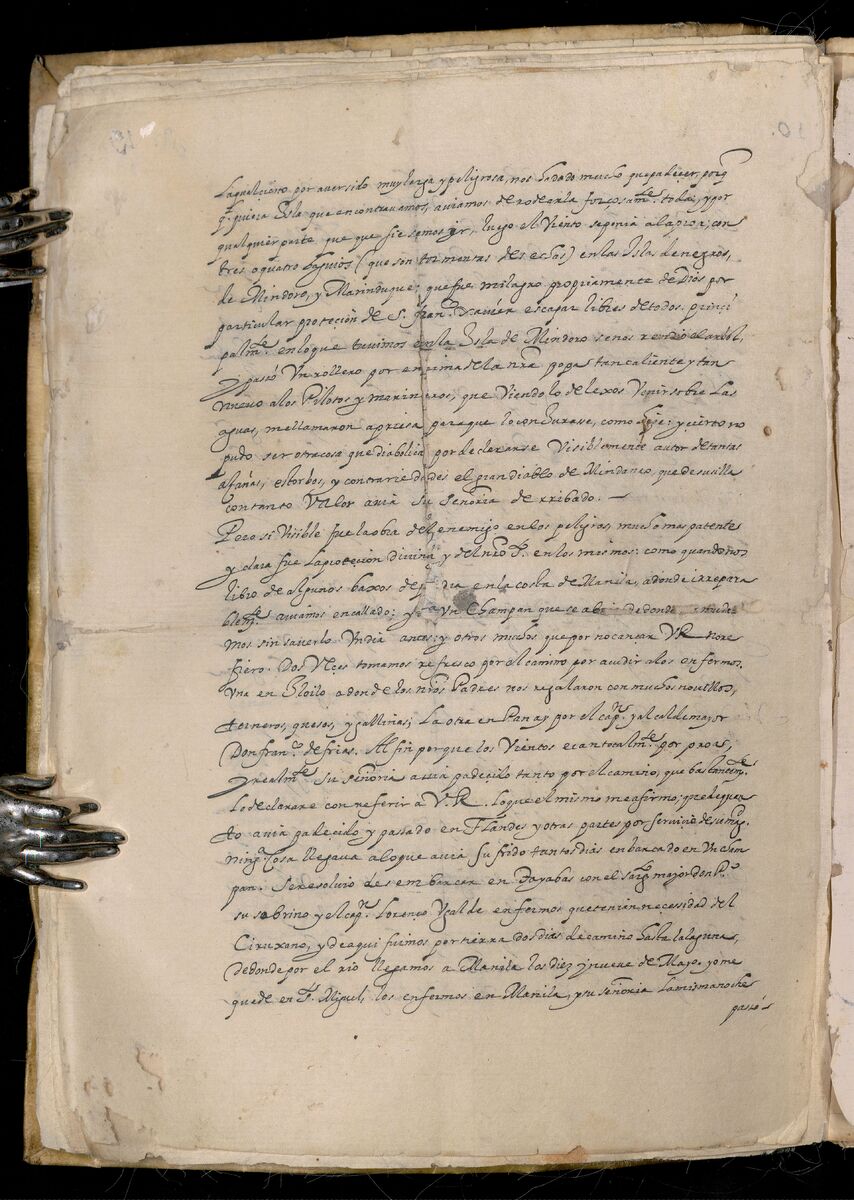 La qual como por aver sido muy larga y peligrosa, nos ha dado mucho que padecer, porq̃
qͣlquiera Isla que encontravamos, aviamos de rodearla forçosamͤ. toda, y por
qualquier parte que quisiesemos yr, luego el Viento se ponia a la proa; con
tres o quatro baguios (que son tormentas desechas) en las Islas de negros,
de Mindoro, y Marinduque; que fue milagro propriamente de Dios por
particular proteción de S. Franͨ. Xavier escapar libres de todos. prinçi
palmͤ. en lo que tuvimos en la Isla de Mindoro se nos rendio el arbol,
y pasó Un rollero por encima de la nrã popa tan caliente y tan
nuevo a los Pilotos y marineros, que Viendolo de lexos Venir sobre las
aguas, me llamaron apriesa para que lo conJurase, como hise: y çierto no
pudo ser otra cosa que diabolica por declararse Visiblemente autor de tantas
afañas, estorbos, y contrariedades el gran diablo de Mindanao, que de su silla
con tanto Valor avia su señoria derribado. —
Pero si Visible fue la obra del enemigo en los peligros, mucho mas patente
y clara fue la proteçion divina y del nrõ Sͭ. en los mismos: como quando nos
libro de algunos baxos de dia en la costa de Manila, adonde irrepara
blemͤ. aviamos encallado: y Un Champan que se de donde mude
mos sin saverlo Un dia antes: y otros muchos que por no cansar VR no re
fiero. Dos Veçes tomamos refresco por el camino por acudir a los enfermos.
Una en Iloilo adonde los nrõs Padres nos regalaron con muchos novillos,
terneros, quesos, y gallinas; La otra en Panay por el capͫ. y alcalde mayor
Don franͨ. de frias. Al fin porque los Vientos eran totalmͤ. por proas,
y realmͤ. su señoria avia padeçido tanto por el camino, que bastantemͤ.
lo declarare con referir a V.R. lo que el mismo me afirmo; que de quan
to avia padeçido y pasado en Flandes y otras partes por serviçio de su magͩ.
ningͣ. cosa llegava a lo que avia sufrido tantos dias enbarcado en Un cham
pan. Se resolvio desembarcar en Tayabas con el sargͭ. major don Pͦ.
su sobrino y el capͫ. Lorenço Ugalde enfermos que tenian necessidad del
Cirujano, y de aqui fuimos por tierra dos dias de camino hasta la laguna,
de donde por el rio llegamos a Manila los diez y nueve de Mayo, yo me
quede en S. Miguel, los enfermos en Manila, y su señoria la misma noche
pasó